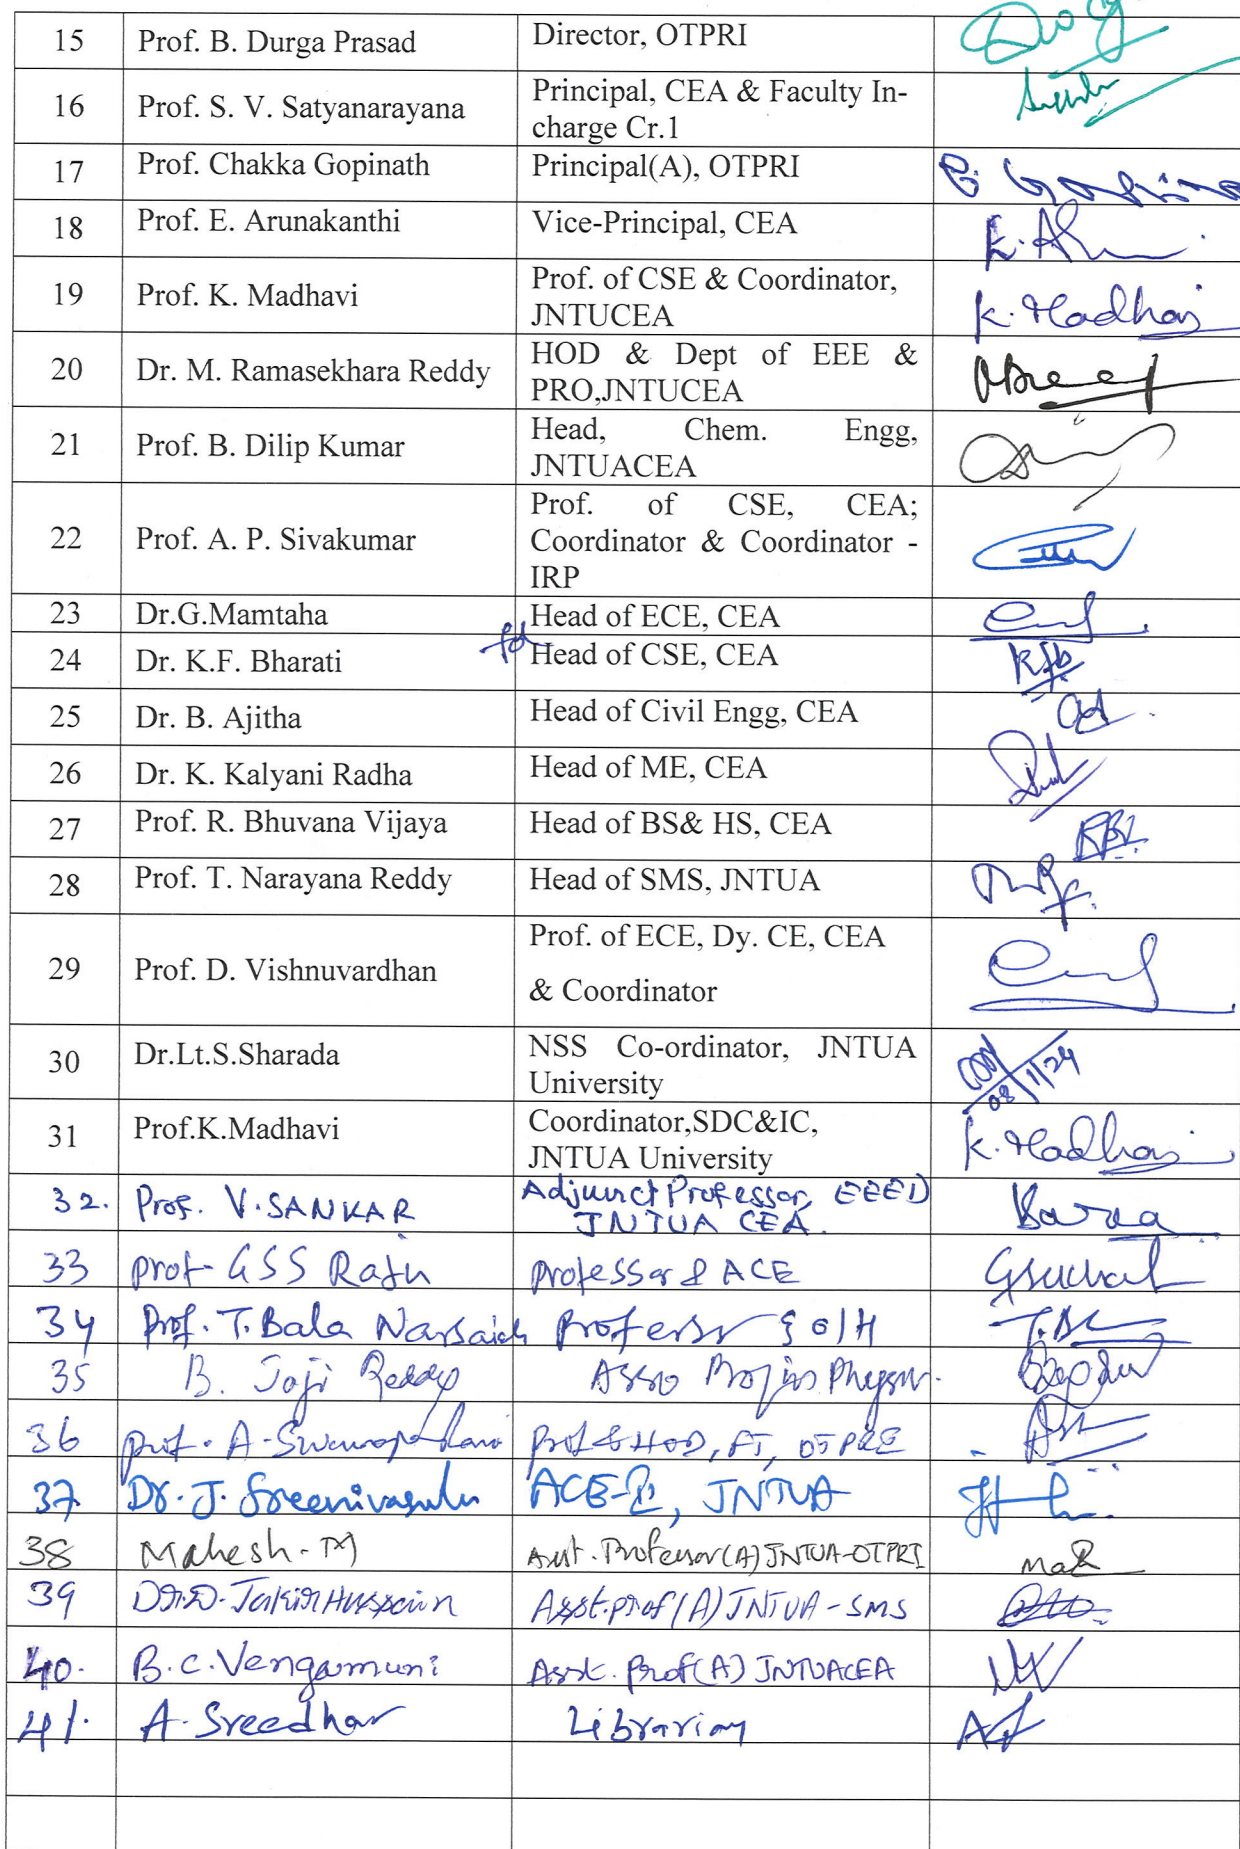 15 Prof. B. Durga Prasad Director, OTPRI
16 Prof. S. V. Satyanarayana Principal, CEA & Faculty In-
charge Cr.1
17 Prof. Chakka Gopinath Principal(A), OTPRI
18 Prof. E. Arunakanthi Vice-Principal, CEA
19 Prof. K. Madhavi Prof. of CSE & Coordinator,
JNTUCEA K. Madhavi
20 Dr. M. Ramasekhara Reddy HOD & Dept of EEE &
PRO,JNTUCEA
21 Prof. B. Dilip Kumar Head, Chem. Engg,
JNTUACEA
22 Prof. A. P. Sivakumar Prof. of CSE, CEA;
Coordinator & Coordinator -
IRP
23 Dr.G.Mamtaha Head of ECE, CEA
24 Dr. K.F. Bharati Head of CSE, CEA Kfb
25 Dr. B. Ajitha Head of Civil Engg, CEA
26 Dr. K. Kalyani Radha Head of ME, CEA
27 Prof. R. Bhuvana Vijaya Head of BS& HS, CEA
28 Prof. T. Narayana Reddy Head of SMS, JNTUA
29 Prof. D. Vishnuvardhan Prof. of ECE, Dy. CE, CEA
& Coordinator
30 Dr.Lt.S.Sharada NSS Co-ordinator, JNTUA
University 08/11/24
31 Prof.K.Madhavi Coordinator,SDC&IC,
JNTUA University K. Madhavi
32. Prof. V.SANKAR Adjunct Professor, EEED
JNTUA CEA.
33 Prof. GSS Raju Professor & ACE
34 Prof. T. Bala Narsaiah Professor
35 B. Joji Reddy Asso
36 Prof. A. Prof & HOD, FT, OTPRI
37 Dr. J. Sreenivasulu JNTUA
38 Mahesh. M Asst. Professor(A) JNTUA-OTPRI
39 Dr.D. Jakir Hussain Asst.prof(A) JNTUA-SMS
40. B.C. Vengamuni Asst. Prof(A) JNTUACEA
41. A. Sreedhar Librarian